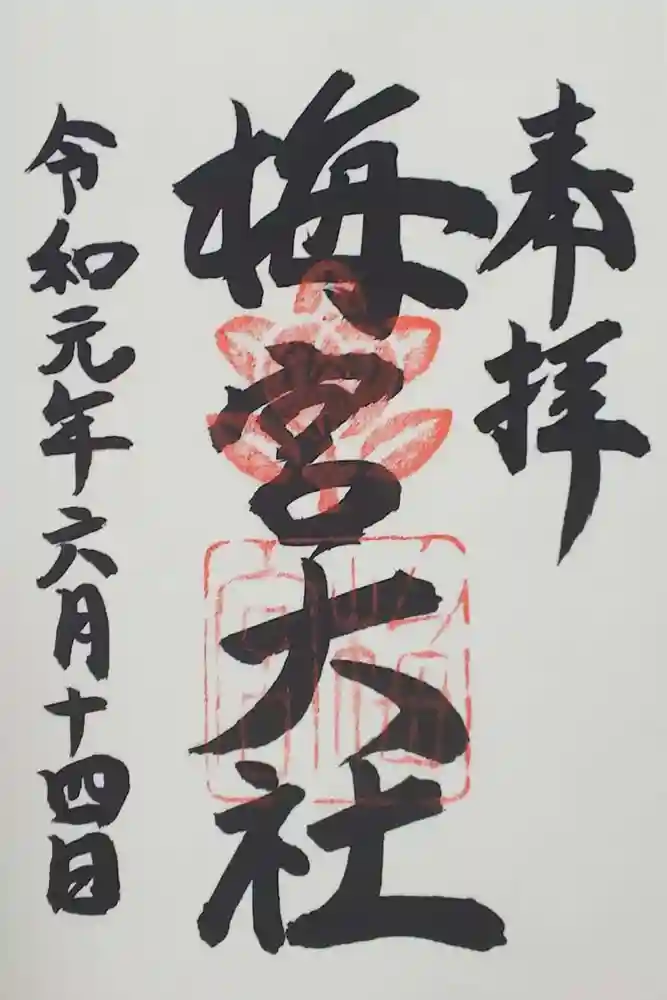 奉拝
梅宮大社
令和元年六月十四日